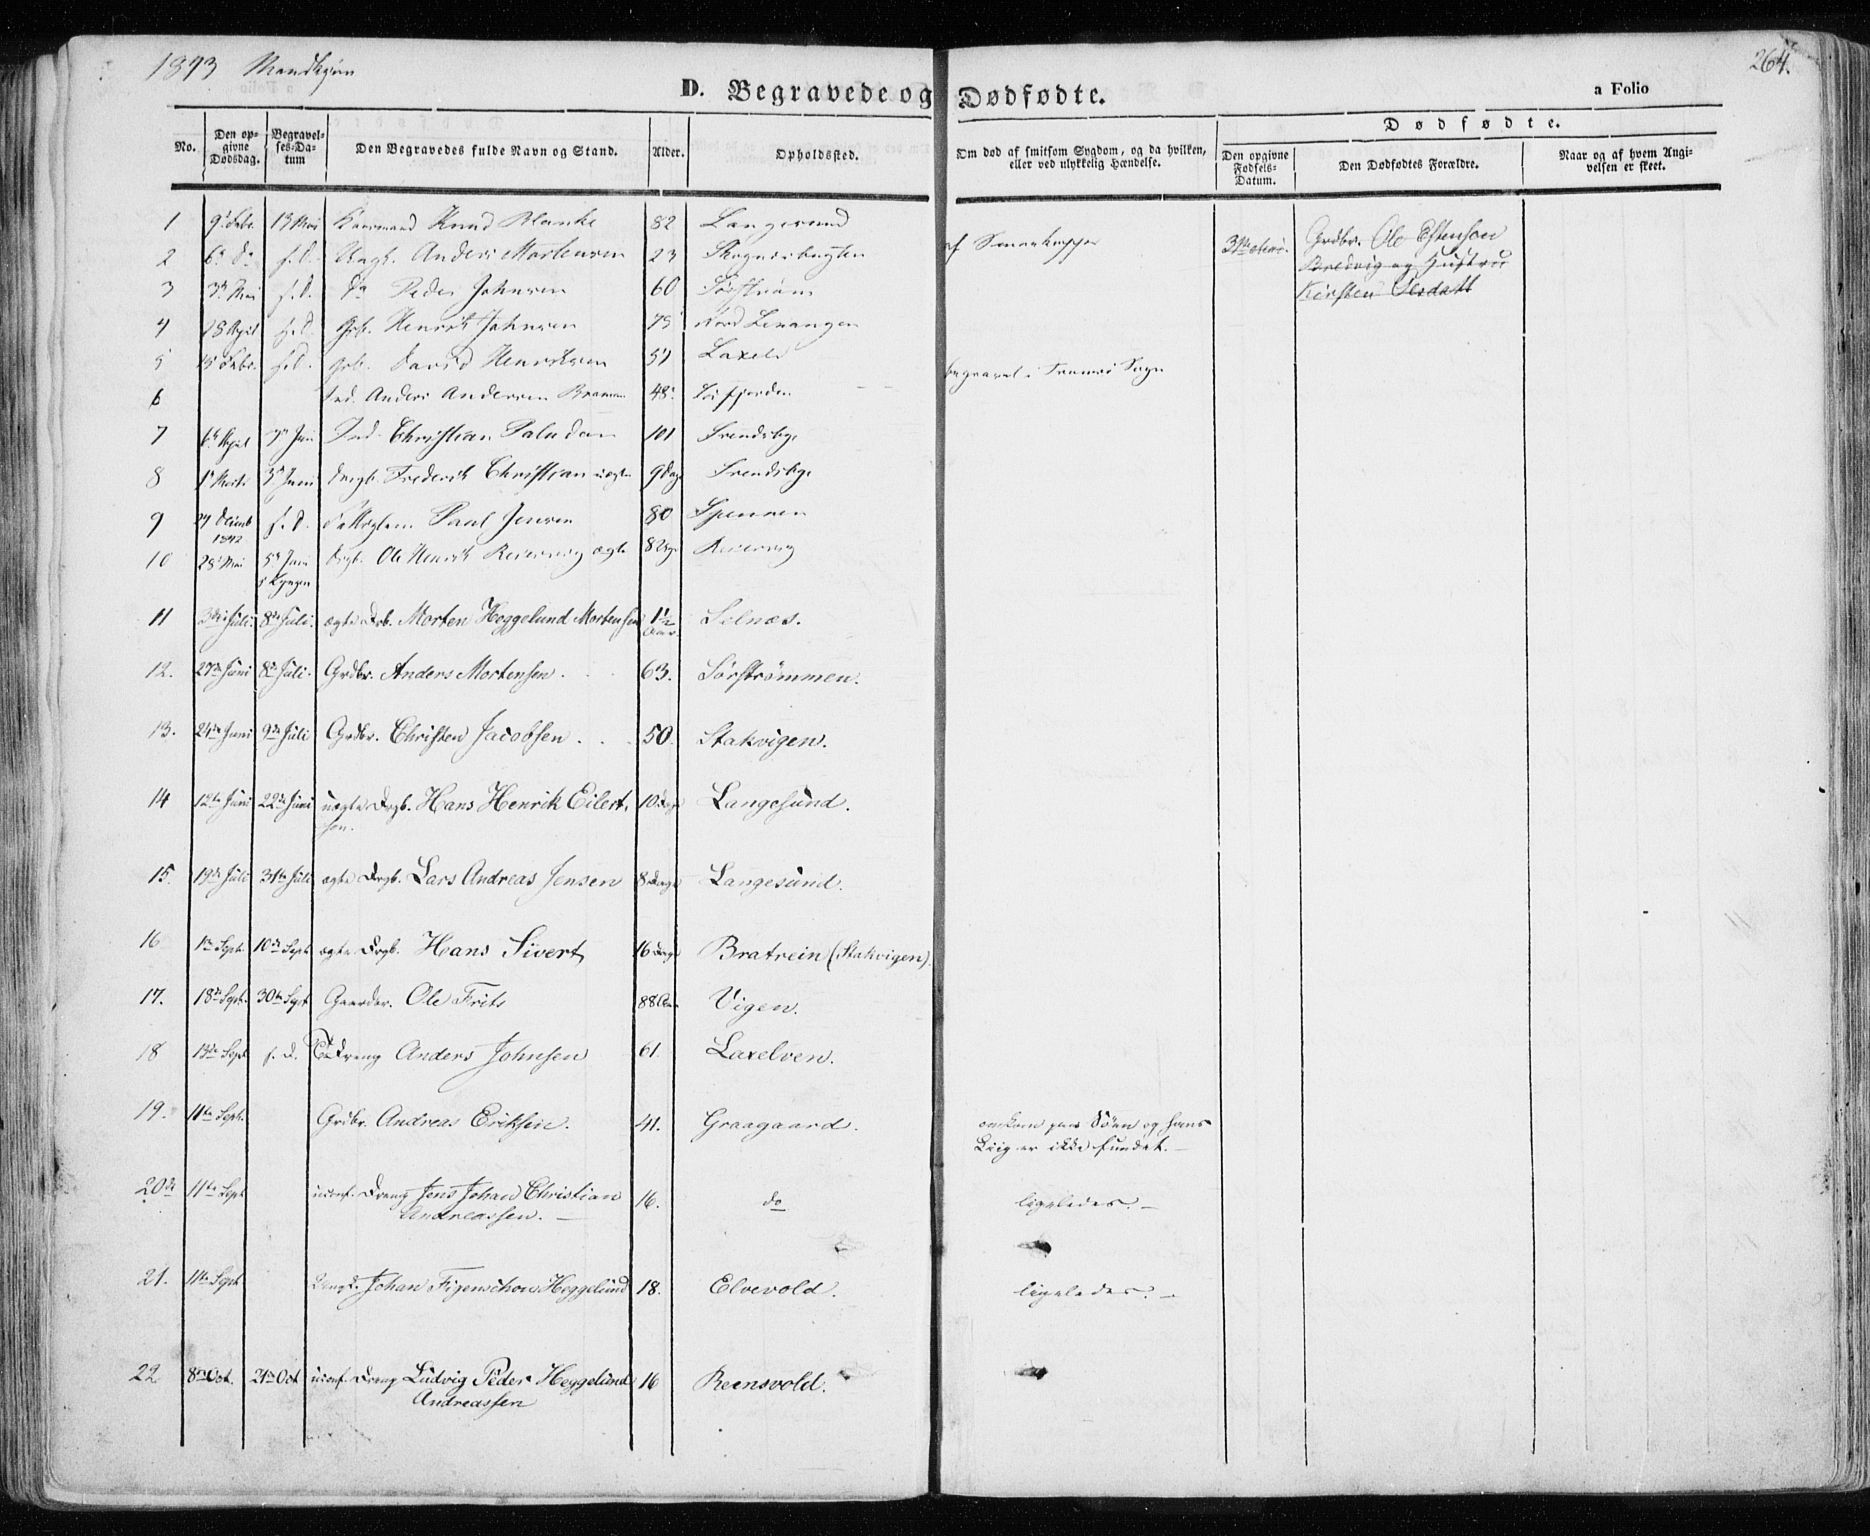 1843 Mandkjøn
264.
D. Begravede og Dødfødte.
a Folio
No.
Den opgivne Dødsdag.
Begravelses-Datum
Den Begravedes fulde Navn og Stand.
Alder.
Opholdssted.
Om død af smitsom Sygdom, og da hvilken, eller ved ulykkelig Hændelse.
Dødfødte.
Den opgivne Fødsels-Datum.
Den Dødfødtes Forældre.
Naar og af hvem Angivelsen er skeet.
1 9 Febr. 13 Mai Knud Blanke 82 Langesund
Grdbr. Ole Estensen
2 6 Do s.D. Ungk. Anders Mortensen 23
Bredvig og Hustru
3 3 Mai s.D. Do Peder Johnsen 60 Sørstrøm
Kirsten Olsdatt
4 18 April s.D. Grb. Henrik Johnsen 75 Nord Lenangen
5 15 Febr. s.D. Grb. David Henriksen 57 Laxelv
begravet i Tromsø Sogn
6 Ind. Anders Andersen 48 Sørfjorden
7 6 April Juni Ind. Christian Paludan 101
8 1 Marts 3 Juni Drgb. Frederik Christian uægte 9 Dage
9 27 Decemb 1842 s.D. Paul Jensen 80 Spennen
10 28 Mai 5 Juni i Lyngen Drgb. Ole Henrik Reiersvig ægte Reiersvig
11 3die Juli. 8de Juli. ægte Drb. Morten Heggelund Mortensen 1½ Aar. Selnæs.
12. 27de Juni 8de Juli. Grdbr. Anders Mortensen. 63. Sørstrømmen.
13. 24de Juni 9de Juli Grdbr. Christen Jacobsen . . . 50. Stakvigen.
14 12te Juni 22de Juni uægte Drgb. Hans Henrik Eilertsen. 10 Dage Langesund.
15. 19de Juli 31te Juli ægte Drgb. Lars Andreas Jensen 8 Dage Langesund.
16 1ste Sept. 10de Sept. ægte Drgb. Hans Sivert 16 Dage Bratrein (Stakvigen).
17. 18de Sept. 30te Sept Ole Frits 88 Aar Vigen.
18 13de Sept s. D. Dreng Anders Johnsen 61. Laxelven.
19. 11te Sept. Grdbr. Andreas Eriksen. 41. Graagaard. omkom paa Søen og hans
Liig er ikke fundet. —
20de 11te Sept uconf. Dreng Jens Johan Christian 16. do ligeledes. —
Andreassen. —
21. 11te Sept Johan Figenschou Heggelund 18. Elvevold. ligeledes. —
22 8de Oct. 21de Oct uconf. Dreng Ludvig Peder Heggelund 16 Reensvold.
Andreassen